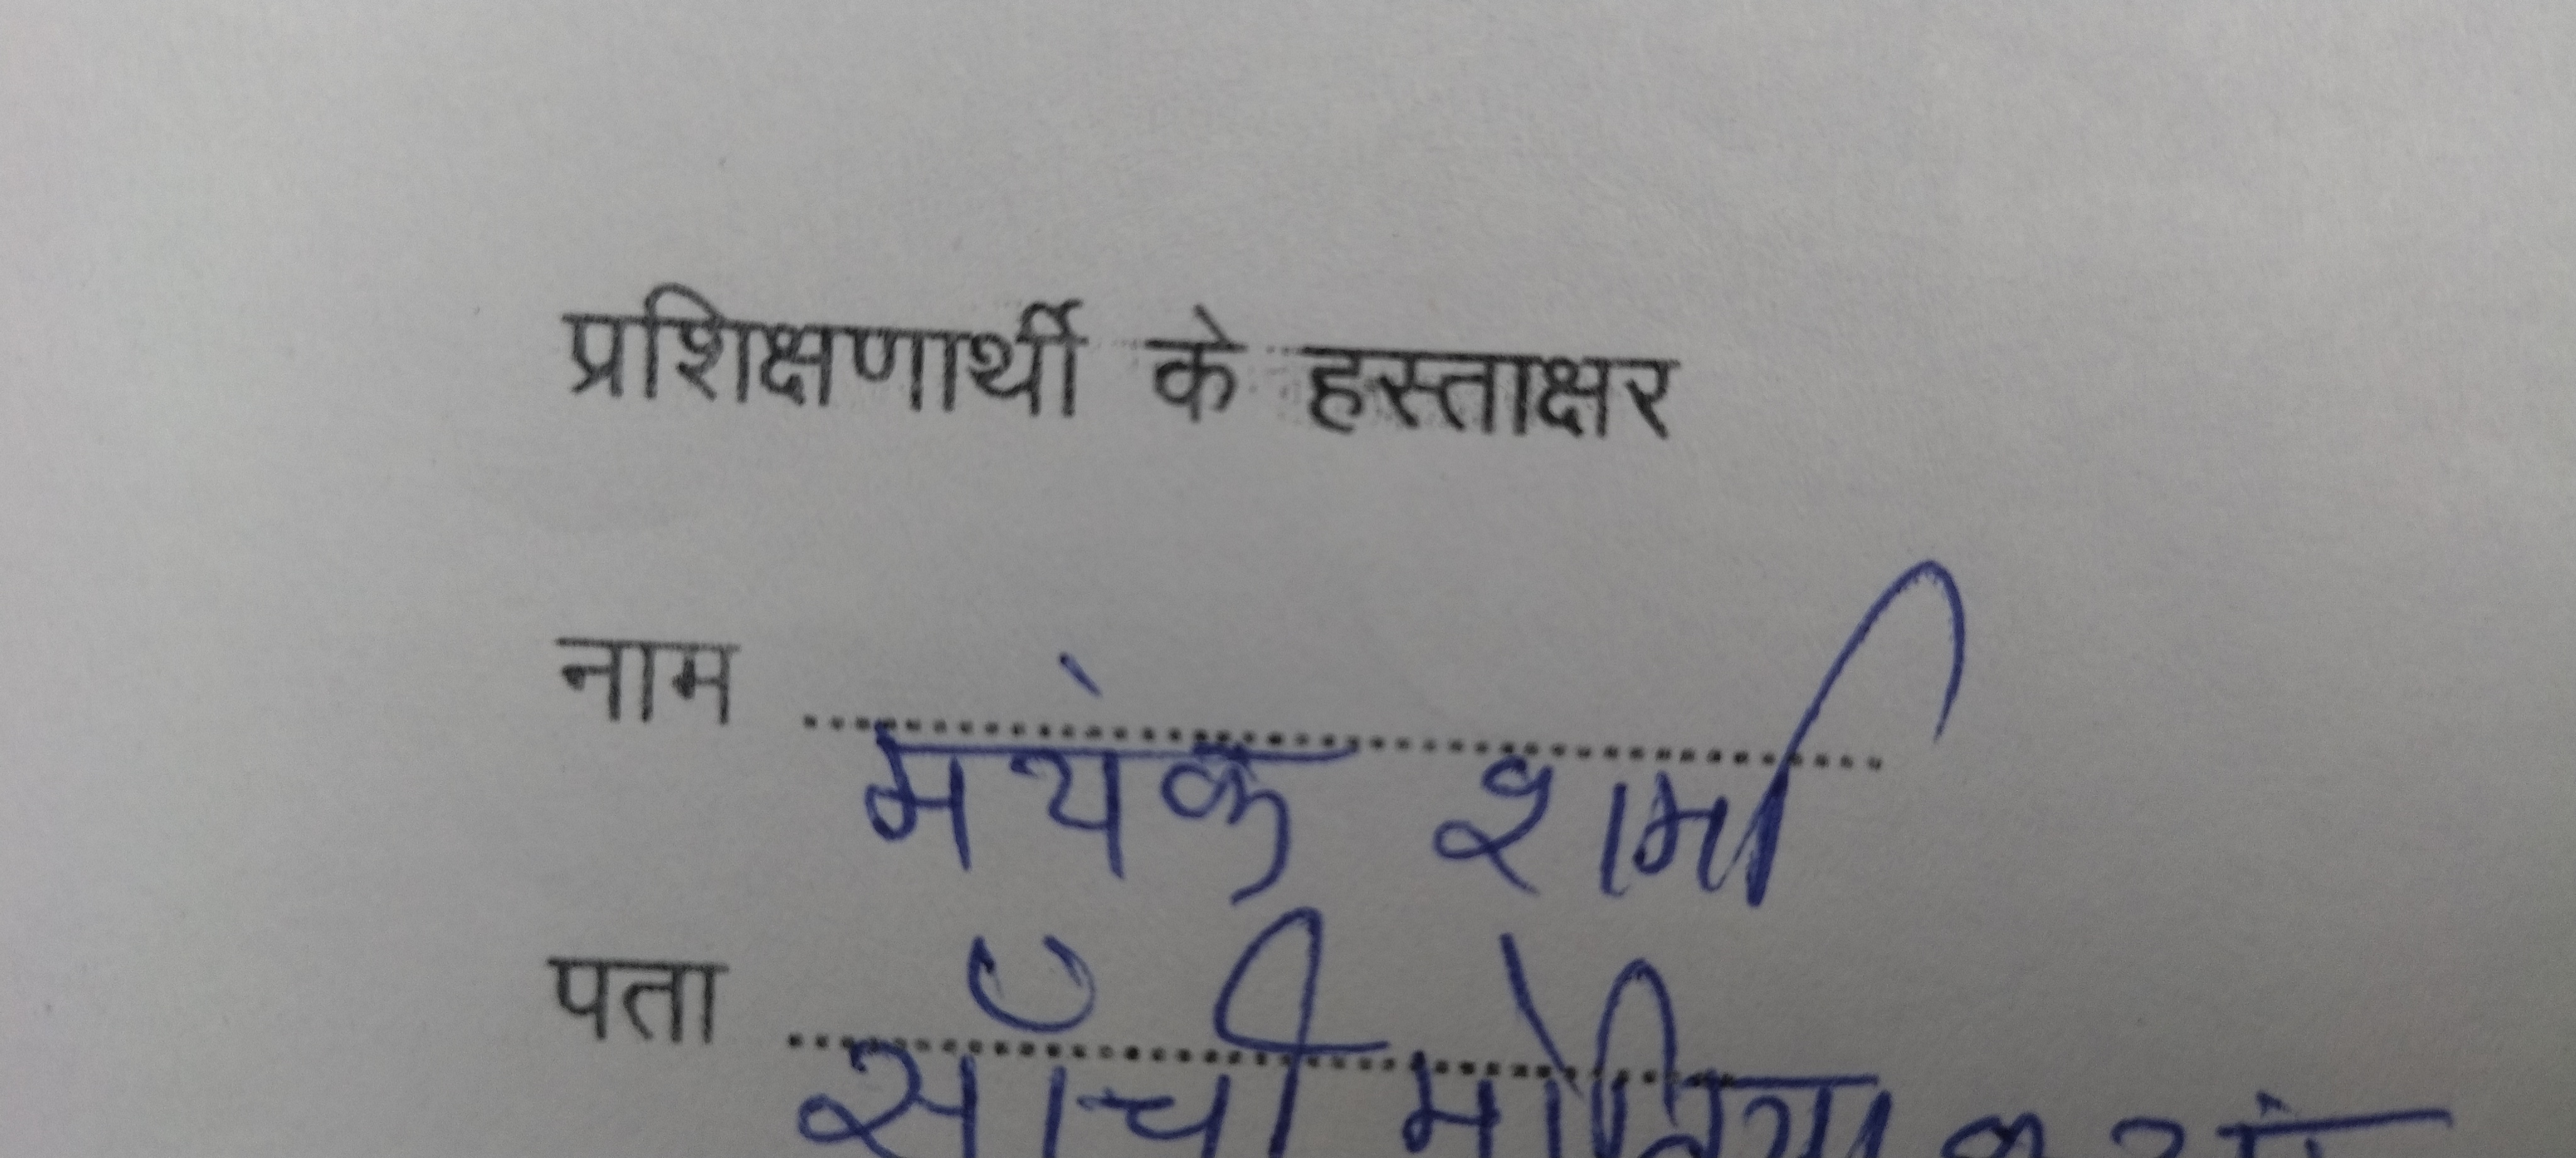 प्रशिक्षणार्थी के हस्ताक्षर
नाम मयंक शर्मा
पता साँची